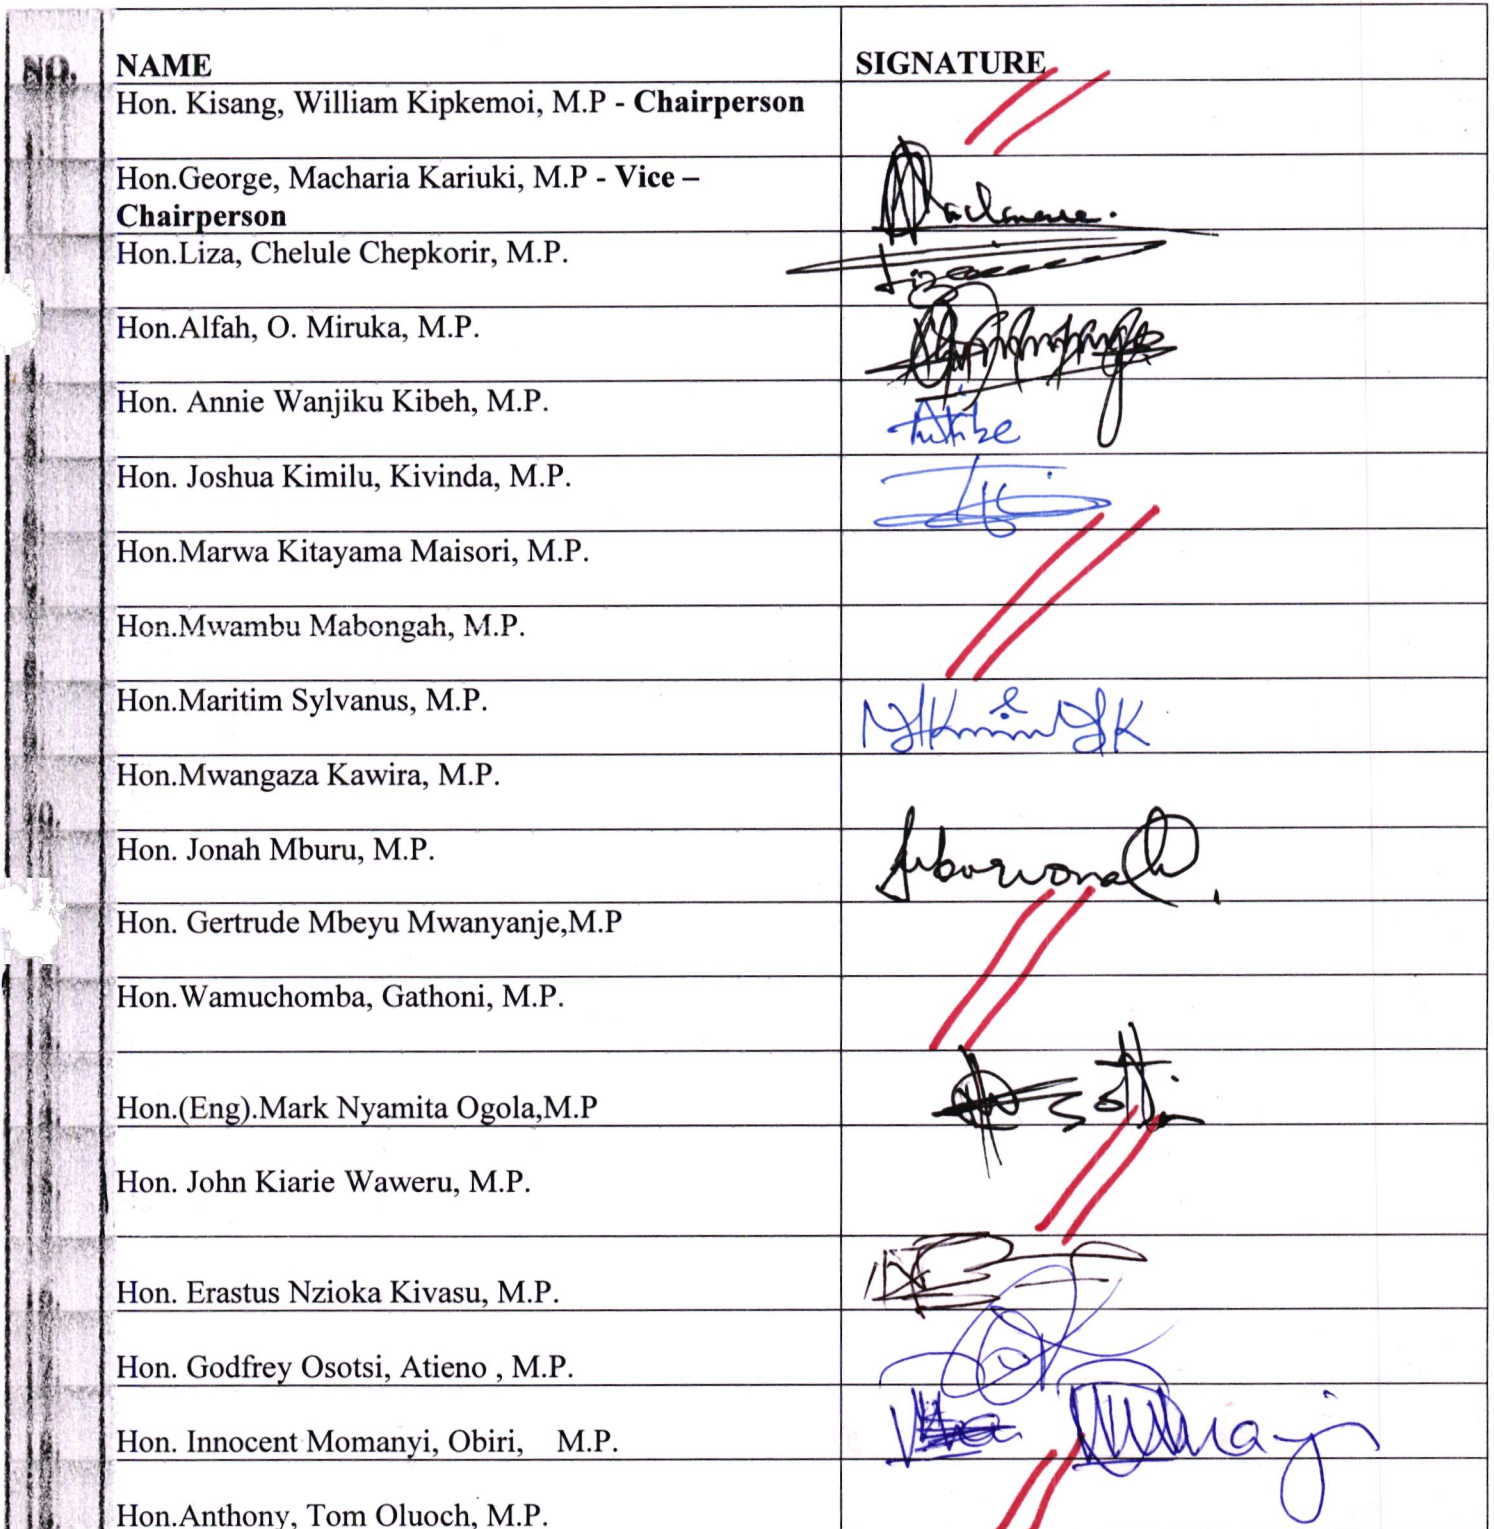 NO. NAME SIGNATURE
Hon. Kisang, William Kipkemoi, M.P - Chairperson
Hon.George, Macharia Kariuki, M.P - Vice –
Chairperson
Hon.Liza, Chelule Chepkorir, M.P.
Hon.Alfah, O. Miruka, M.P.
Hon. Annie Wanjiku Kibeh, M.P.
Hon. Joshua Kimilu, Kivinda, M.P.
Hon.Marwa Kitayama Maisori, M.P.
Hon.Mwambu Mabongah, M.P.
Hon.Maritim Sylvanus, M.P.
Hon.Mwangaza Kawira, M.P.
Hon. Jonah Mburu, M.P.
Hon. Gertrude Mbeyu Mwanyanje,M.P
Hon.Wamuchomba, Gathoni, M.P.
Hon.(Eng).Mark Nyamita Ogola,M.P
Hon. John Kiarie Waweru, M.P.
Hon. Erastus Nzioka Kivasu, M.P.
Hon. Godfrey Osotsi, Atieno , M.P.
Hon. Innocent Momanyi, Obiri, M.P.
Hon.Anthony, Tom Oluoch, M.P.